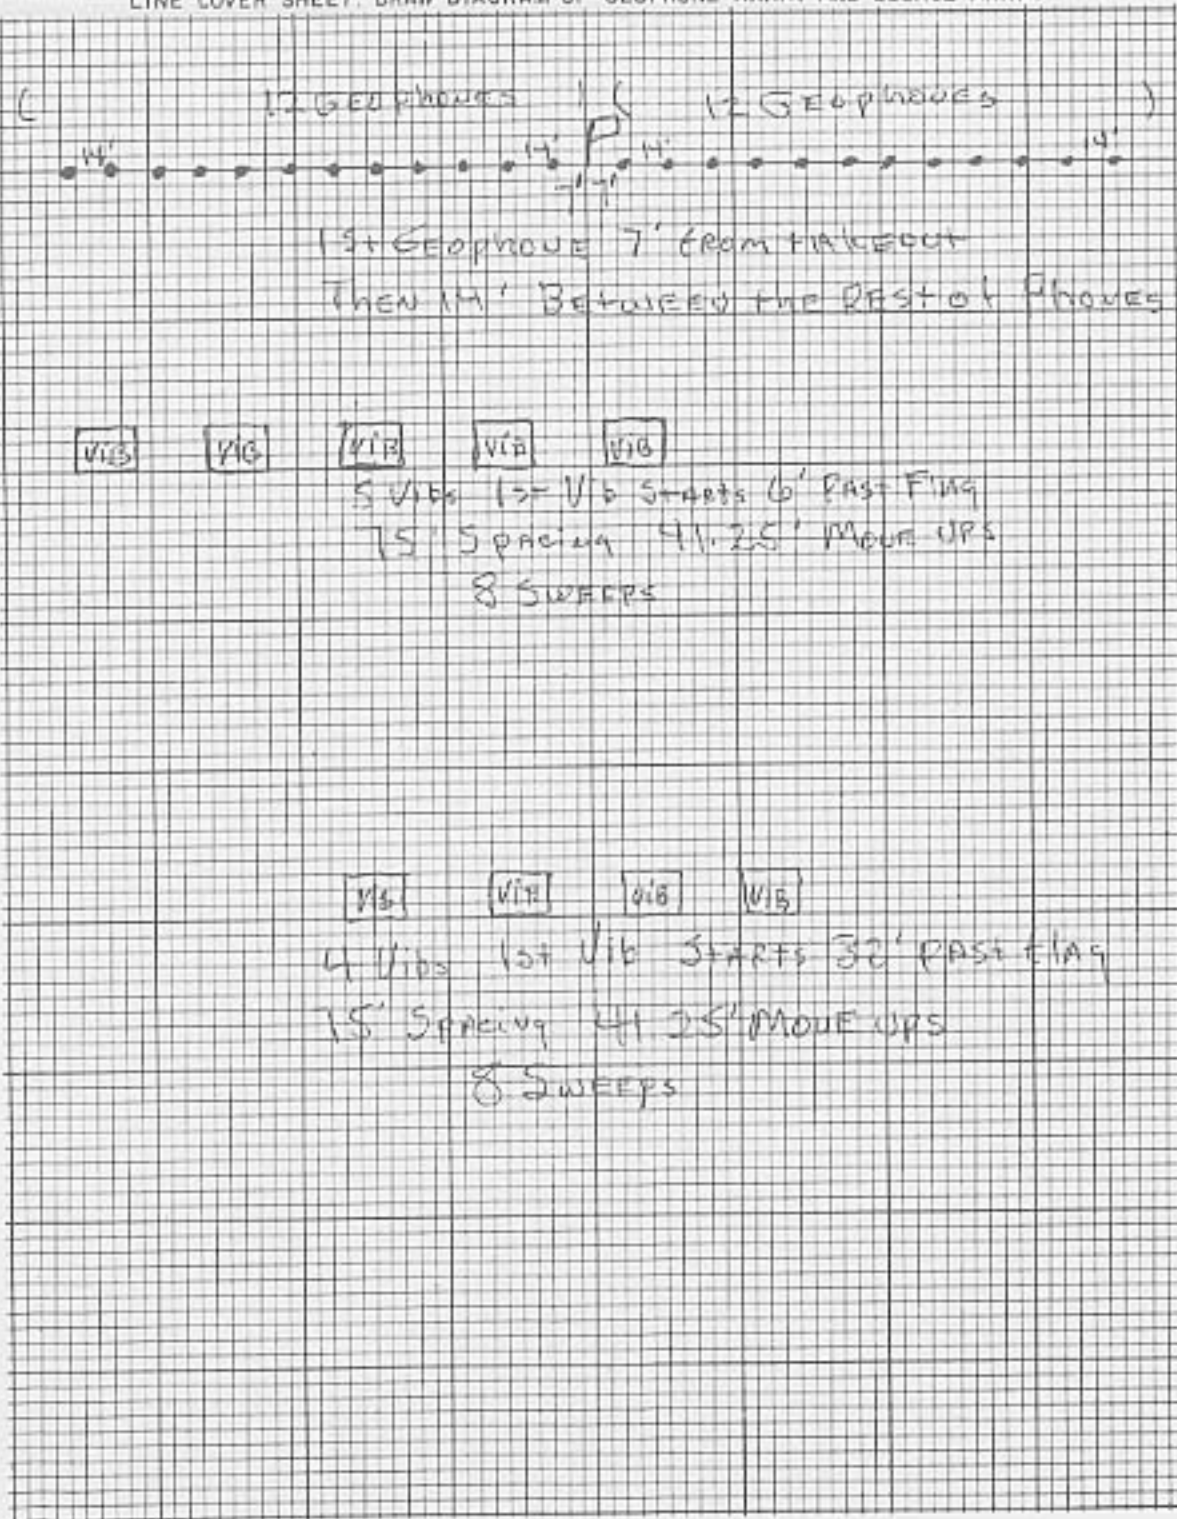 LINE COVER SHEET: DRAW DIAGRAM OF GEOPHONE ARRAY AND SOURCE
( 12 GEOPHONES ) ( 12 GEOPHONES )
14' 14' 14' 14'
7' 7'
1st GEOPHONE 7' FROM TAKEOUT
THEN 14' BETWEEN the REST OF PHONES
ViB ViB ViB ViB ViB
5 Vibs 1st Vib Starts 6' PAST FlAg
75' Spacing 41.25' MOVE UPS
8 SWEEPS
ViB ViB ViB ViB
4 Vibs 1st Vib StARTS 32' PASt FlAg
75' Spacing 41.25' MOVE UPS
8 SWEEPS